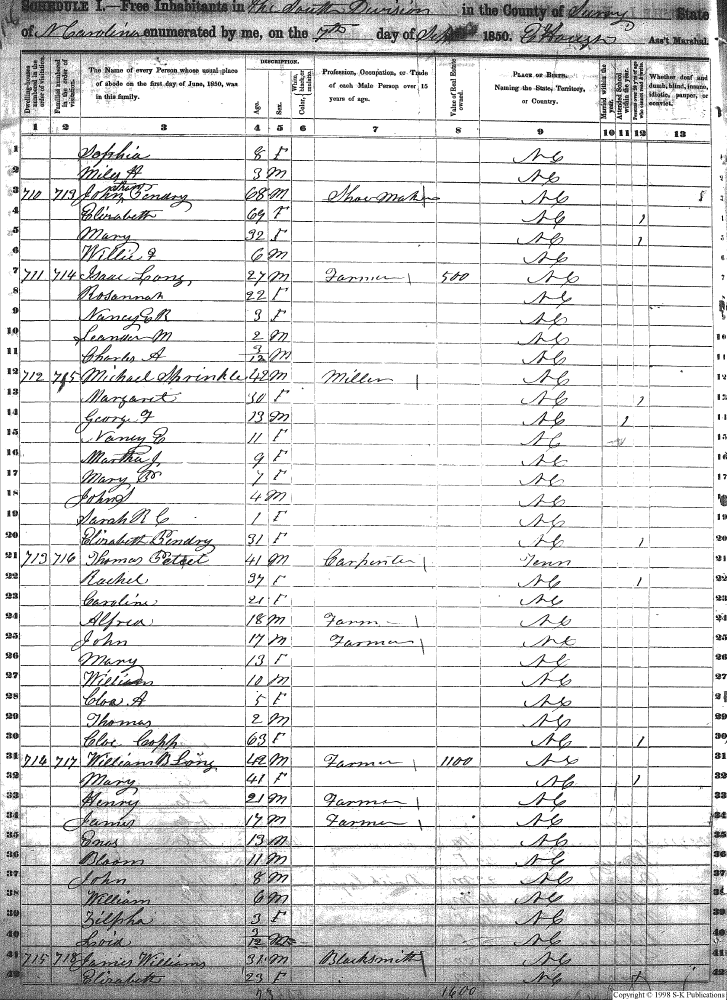 SCHEDULE I.—Free Inhabitants in The South Division in the County of Surry State
of N Carolina enumerated by me, on the 7th day of Sept 1850. Ass't Marshal.
Dwelling-houses numbered in the order of visitation.
Families numbered in the order of visitation.
The Name of every Person whose usual place of abode on the first day of June, 1850, was in this family.
DESCRIPTION.
Age.
Sex.
White, black, or mulatto.
Color,
Profession, Occupation, or Trade of each Male Person over 15 years of age.
Value of Real Estate owned.
PLACE OF BIRTH.
Naming the State, Territory, or Country.
Married within the year.
Attended School within the year.
Whether deaf and dumb, blind, insane, idiotic, pauper, or convict.
1 2 3 4 5 6 7 8 9 10 11 12 13
1 Sophia 8 F NC
2 Miles H 3 M NC
3 710 713 John Pendry 68 M Shoe Maker NC
4 Elizabeth 69 F NC 1
5 Mary 32 F NC 1
6 Willie F 6 M NC
7 711 714 Isaac Long 27 M Farmer 500 NC
8 Rosannah 22 F NC
9 Nancy E R 3 F NC
10 Leander M 2 M NC
11 Charles A 3/12 M NC
12 712 715 Michael Sprinkle 42 M Miller NC
13 Margaret 30 F NC 1
14 George F 13 M NC 1
15 Nancy E 11 F NC
16 Martha J 9 F NC
17 Mary B 7 F NC
18 John S 4 M NC
19 Sarah R C 1 F NC
20 Elizabeth Pendry 31 F NC 1
21 713 716 Thomas 41 M Carpenter Tenn
22 Rachel 37 F NC 1
23 Caroline 21 F NC
24 Alfred 18 M Farmer NC
25 John 17 M Farmer NC
26 Mary 13 F NC
27 William 10 M NC
28 Cloa A 5 F NC
29 Thomas 2 M NC
30 Cloe Copp 63 F NC 1
31 714 717 William B Long 42 M Farmer 1100 NC
32 Mary 41 F NC 1
33 Henry 21 M Farmer NC
34 James 17 M Farmer NC
35 Enos 13 M NC
36 Bloom 11 M NC
37 John 8 M NC
38 William 6 M NC
39 Zilpha 3 F NC
40 3/12 NC
41 715 718 James Williams 31 M Blacksmith NC
42 Elizabeth 23 F NC
1600
Copyright © 1998 S-K Publications